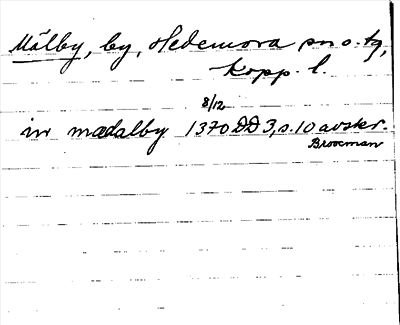 Mälby, by, Hedemora sn o. tg,
Kopp. l.
8/12
in mædalby 1370 DD 3, s. 10 avskr.
Broocman